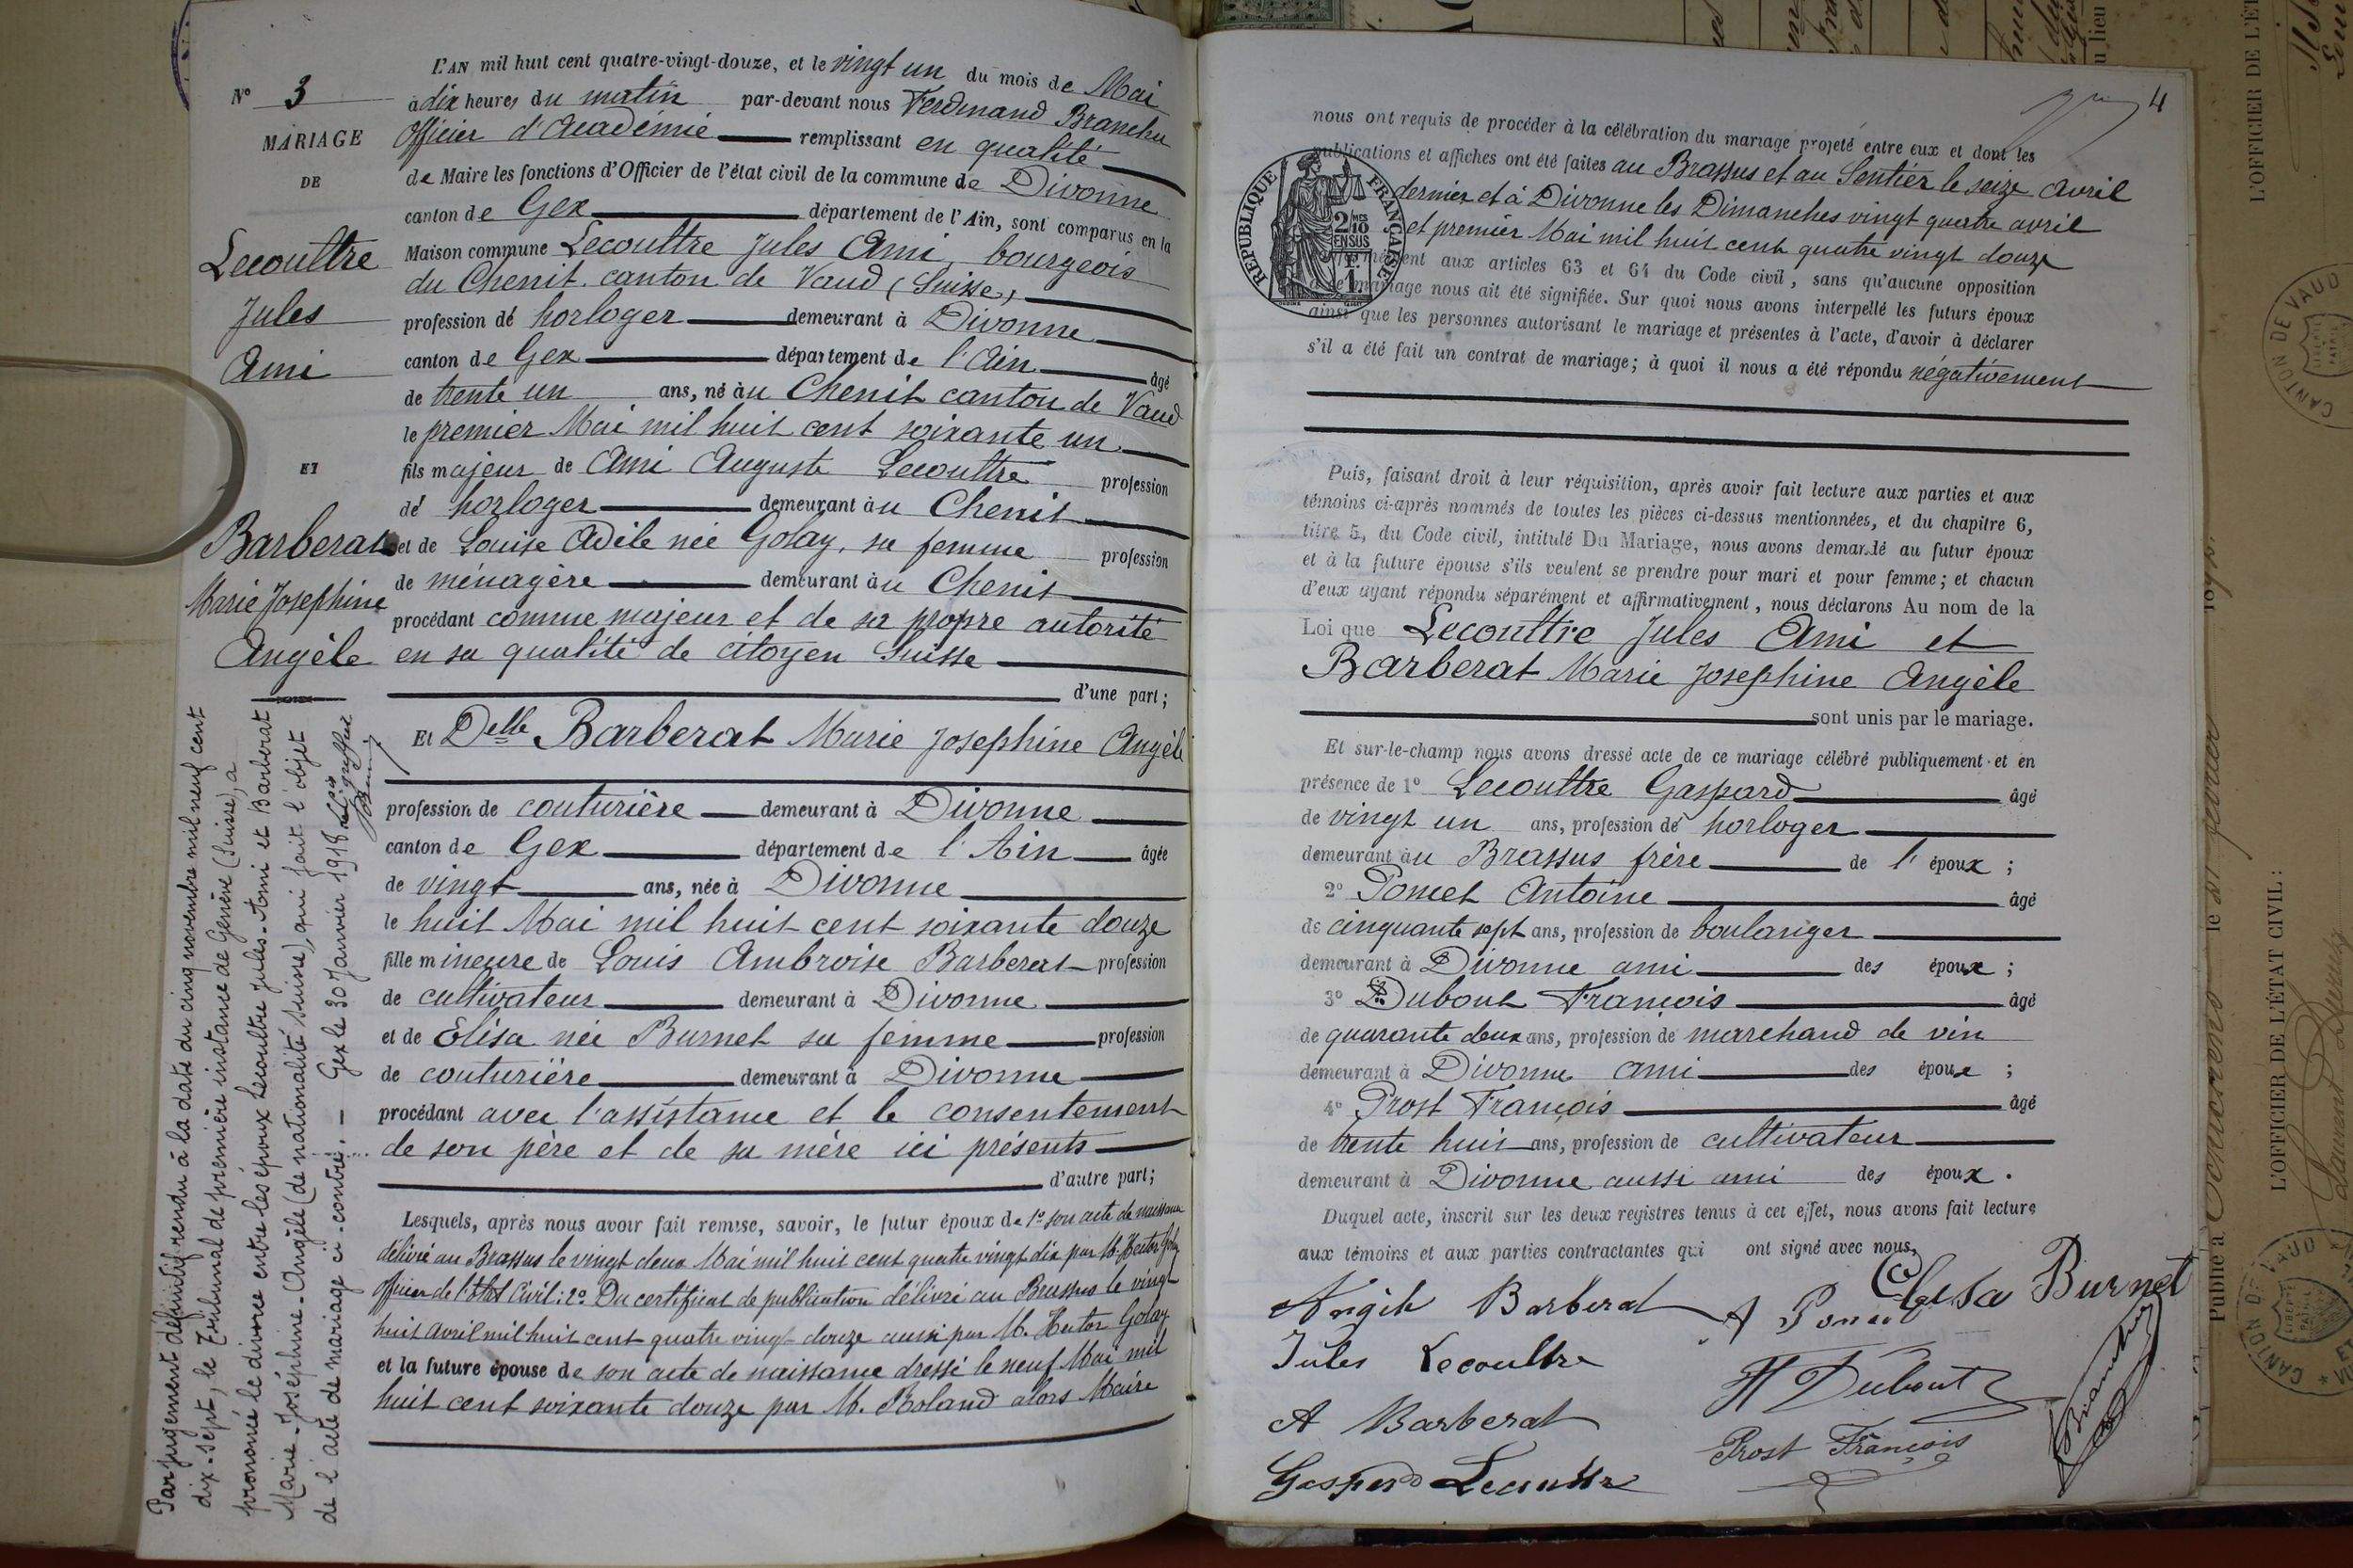 N° 3
MARIAGE
DE
Lecoultre
Jules
Ami
ET
Barberat
Marie Josephine
Angèle
Par jugement définitif rendu à la date du cinq novembre mil neuf cent
dix-sept, le Tribunal de première instance de Genève (Suisse), a
prononcé le divorce entre les époux Lecoultre Jules-Ami et Barberat
Marie-Joséphine-Angèle (de nationalité Suisse), qui fait l'objet
de l'acte de mariage ci-contre. — Gex le 30 Janvier 1918
L'AN mil huit cent quatre-vingt-douze, et le vingt un du mois de Mai
à dix heures du matin par-devant nous Ferdinand Branchu
Officier d'Académie remplissant en qualité
de Maire les fonctions d'Officier de l'état civil de la commune de Divonne
canton de Gex département de l'Ain, sont comparus en la
Maison commune Lecoultre Jules Ami, bourgeois
du Chenit. canton de Vaud (Suisse)
profession de horloger demeurant à Divonne
canton de Gex département de l'Ain âgé
de trente un ans, né au Chenit canton de Vaud
le premier Mai mil huit cent soixante un
fils majeur de Ami Auguste Lecoultre profession
de horloger demeurant au Chenit
et de Louise Adèle née Golay, sa femme profession
de ménagère demeurant au Chenit
procédant comme majeur et de sa propre autorité
en sa qualité de citoyen Suisse
d'une part;
Et Delle Barberat Marie Josephine Angèle
profession de couturière demeurant à Divonne
canton de Gex département de l'Ain âgée
de vingt ans, née à Divonne
le huit Mai mil huit cent soixante douze
fille mineure de Louis Ambroise Barberat profession
de cultivateur demeurant à Divonne
et de Elisa née Burnet sa femme profession
de couturière demeurant à Divonne
procédant avec l'assistance et le consentement
de son père et de sa mère ici présents
d'autre part;
Lesquels, après nous avoir fait remise, savoir, le futur époux de 1° son acte de naissance
délivré au Brassus le vingt deux Mai mil huit cent quatre vingt dix par M. Hector Golay
officier de l'Etat Civil: 2° Du certificat de publication délivré au Brassus le vingt
huit avril mil huit cent quatre vingt douze aussi par M. Hector Golay
et la future épouse de son acte de naissance dressé le neuf Mai mil
huit cent soixante douze par M. Roland alors Maire
4
nous ont requis de procéder à la célébration du mariage projeté entre eux et dont les
publications et affiches ont été faites au Brassus et au Sentier le seize avril
dernier et à Divonne les Dimanches vingt quatre avril
et premier Mai mil huit cent quatre vingt douze
RÉPUBLIQUE FRANÇAISE
2/10 EN SUS
1 F.
aux articles 63 et 64 du Code civil, sans qu'aucune opposition
mariage nous ait été signifiée. Sur quoi nous avons interpellé les futurs époux
ainsi que les personnes autorisant le mariage et présentes à l'acte, d'avoir à déclarer
s'il a été fait un contrat de mariage; à quoi il nous a été répondu négativement
Puis, faisant droit à leur réquisition, après avoir fait lecture aux parties et aux
témoins ci-après nommés de toutes les pièces ci-dessus mentionnées, et du chapitre 6,
titre 5, du Code civil, intitulé Du Mariage, nous avons demandé au futur époux
et à la future épouse s'ils veulent se prendre pour mari et pour femme; et chacun
d'eux ayant répondu séparément et affirmativement, nous déclarons Au nom de la
Loi que Lecoultre Jules Ami et
Barberat Marie Josephine Angèle
sont unis par le mariage.
Et sur-le-champ nous avons dressé acte de ce mariage célébré publiquement et en
présence de 1° Lecoultre Gaspard âgé
de vingt un ans, profession de horloger
demeurant au Brassus frère de l'époux;
2° Poncet Antoine âgé
de cinquante sept ans, profession de boulanger
demeurant à Divonne ami des époux;
3° Dubout François âgé
de quarante deux ans, profession de marchand de vin
demeurant à Divonne ami des époux;
4° Prost François âgé
de trente huit ans, profession de cultivateur
demeurant à Divonne aussi ami des époux.
Duquel acte, inscrit sur les deux registres tenus à cet effet, nous avons fait lecture
aux témoins et aux parties contractantes qui ont signé avec nous,
Angèle Barberat A Poncet Elisa Burnet
Jules Lecoultre
F Dubout
A Barberat
Prost François
Gaspard Lecoultre
Branchu
L'OFFICIER DE L'ÉTAT CIVIL:
CANTON DE VAUD